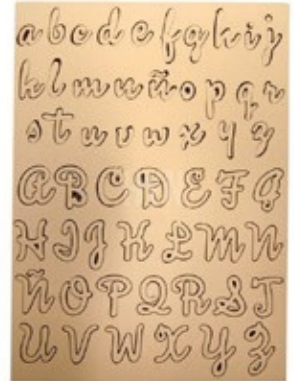 a b c d e f g h i j
k l m n ñ o p q r
s t u v w x y z
A B C D E F G
H I J K L M N
Ñ O P Q R S T
U V W X Y Z